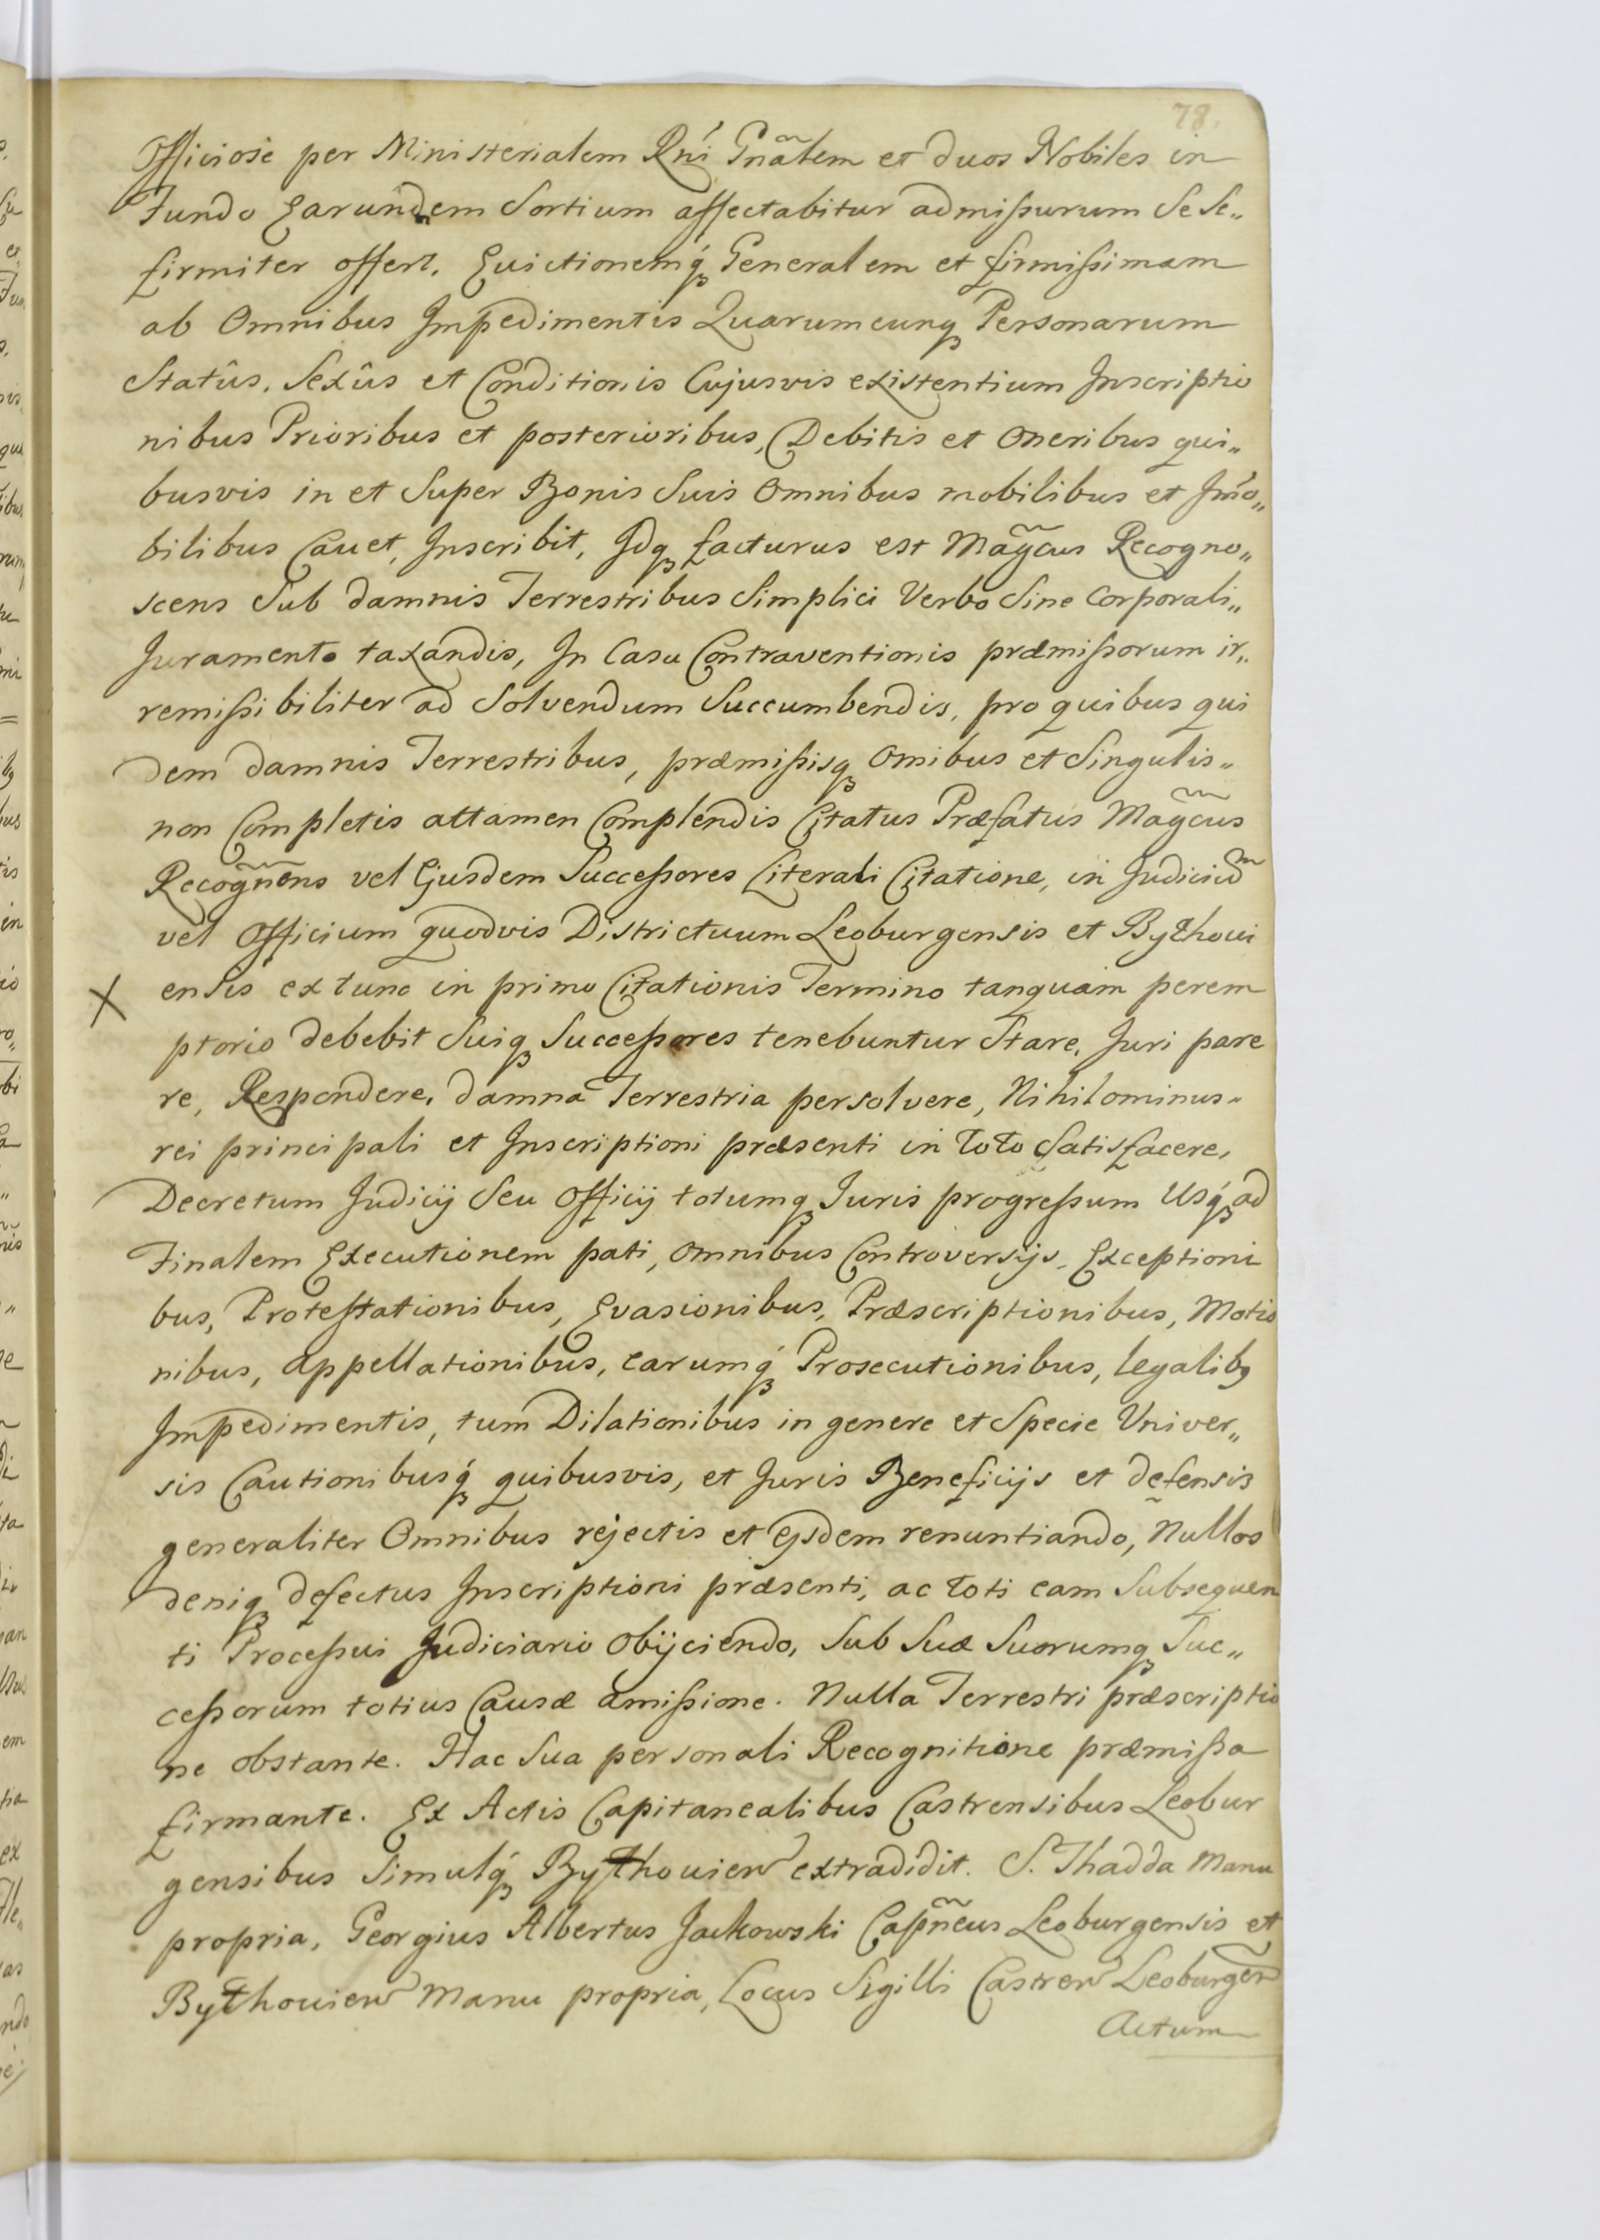 78.
Officiose per Ministerialem Rńi Gnãlem et duos Nobiles in
Fundo Earundem Sortium affectabitur admißurum Se Se„
firmiter offert. Evictionemq́ꝫ Generalem et firmißimam
ab Omnibus Impedimentis Quarumcunqꝫ Personarum
Statûs, Sexûs et Conditionis Cujusvis existentium Inscriptio
nibus Prioribus et posterioribus, Debitis et Oneribus qui„
busvis in et Super Bonis Suis Omnibus mobilibus et Im̃o„
bilibus Cavet, Inscribit, Idqꝫ facturus est Magc̃us Recogno„
scens Sub damnis Terrestribus Simplici Verbo Sine Corporali„
Juramento taxandis, In Casu Contraventionis præmißorum ir„
remißibiliter ad Solvendum Succumbendis, pro quibus qui
dem damnis Terrestribus, præmißisqꝫ Omibus et Singulis„
non Completis attamen Complendis Citatus Præfatus Magc̃us
Recogñens vel Ejusdem Succeßores Literali Citatione, in Judiciũ
vel Officium quodvis Districtuum Leoburgensis et Bythovi
X ensis ex tunc in primo Citationis Termino tanquam perem
ptorio debebit Suiqꝫ Succeßores tenebuntur Stare, Juri pare
re, Respondere, damna Terrestria persolvere, Nihilominus„
rei principali et Inscriptioni præsenti in toto Satisfacere,
Decretum Judicij Seu Officij totumqꝫ Juris progreßum Usq́ꝫ ad
Finalem Executionem pati, Omnibus Controversijs, Exceptioni
bus, Protestationibus, Evasionibus, Præscriptionibus, Motio
nibus, Appellationibus, earumq́ꝫ Prosecutionibus, legalibꝫ
Impedimentis, tum Dilationibus in genere et Specie Univer„
sis Cautionibusq́ꝫ quibusvis, et Juris Beneficijs et defensis
generaliter Omnibus rejectis et ejsdem renuntiando, Nullos
deniqꝫ defectus Inscriptioni præsenti, ac toti eam Subsequen
ti Proceßui Judiciario Obijciendo, Sub Suæ Suorumqꝫ Suc„
ceßorum totius Causæ amißione. Nulla Terrestri præscriptio
ne obstante. Hac Sua personali Recognitione præmißa
firmante. Ex Actis Capitanealibus Castrensibus Leobur
gensibus Simulq́ꝫ Bythovien extradidit. S. Thadda Manu
propria, Georgius Albertus Jackowski Capñeus Leoburgensis et
Bythovien Manu propria, Locus Sigilli Castren Leoburgeñ
Actum